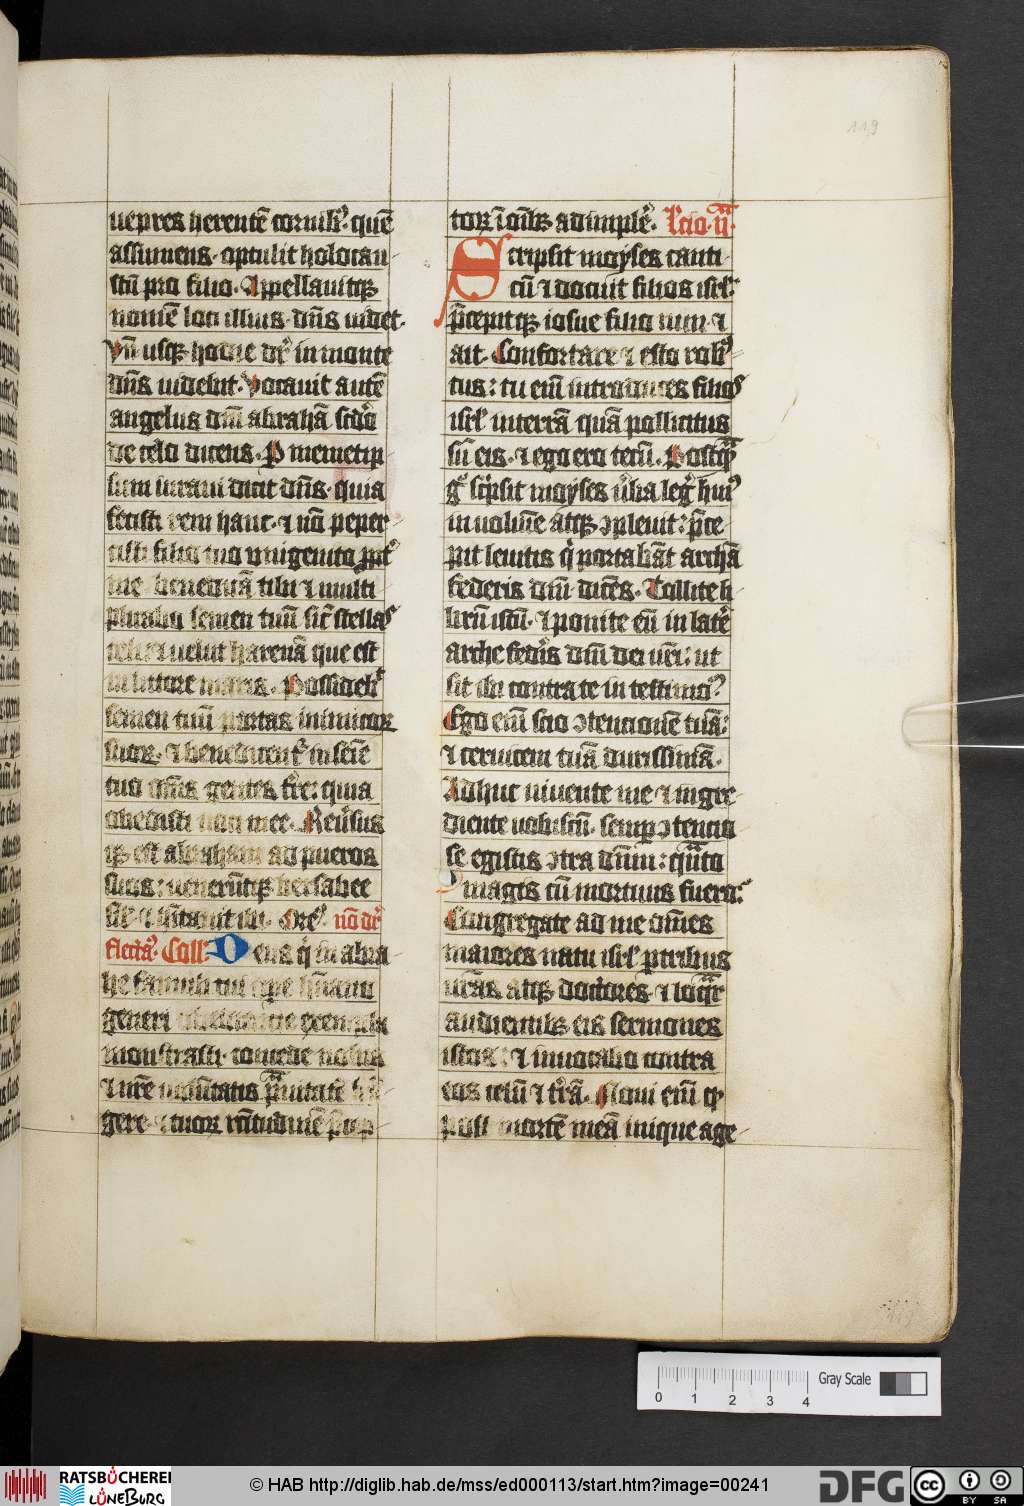 119
uepres herentē cornib⁹. quē
assumens. optulit holocau
stū pro filio. Appellauitqꝫ
nomē loci illius. dn̄s uidet.
Vn̄ usqꝫ hodie dr̄ in monte
dn̄s uidebit. Vocauit autē
angelus dn̄i abrahā scd̓o
de celo dicens. P memetip
sum iuraui dicit dn̄s. quia
fecisti rem hanc. ⁊ nō peper
cisti filio tuo unigenito ꝓpt̓
me benedicā tibi ⁊ multi
plicabo semen tuū sic̄ stellas
celi. ⁊ uelut harenā que est
in littore maris. Possidebit
semen tuū portas inimicoꝝ
suoꝝ. ⁊ benedicent̓ in semīe
tuo om̄s gentes t̓re: quia
obedisti uoci mee. Reu̓sus
iꝑ̄ est abraham ad pueros
suos: ueneruntqꝫ bersabee
sil̓ ⁊ hītauit ibi. Ore᷒. nō dr̄
flectā᷒. Coll̓. Deus q̓ in abra
he famuli tui ope hūano
generi obediencie exempla
monstrasti. concede nobis
⁊ nr̄e uolūtatis prauitatē frā
gere. ⁊ tuoꝝ rc̄itudinē p̄cep
toꝝ ī oīb᷒ adimple᷒. Lc̄io. iiᵃ.
Scripsit moyses canti
cū ⁊ docuit filios isrl̓.
P̄cepitqꝫ iosue filio nun. ⁊
ait. Confortare ⁊ esto rob᷒
tus: tu em̄ introduces filios
isrl̓ in terrā quā pollicitus
sū eis. ⁊ ego ero tecū. Postqᵃ
gͦ sc̓psit moyses u̓ba leg̓ hui᷒
in uolūie atqꝫ ɔpleuit: p̄ce
pit leuitis q̓ portabāt archā
federis dn̄i dicēs. Tollite li
brū istū. ⁊ ponite eū in late̓
arche fed̓is dn̄i dei uest̓i: ut
sit ibi contra te in testimo᷒
Ego em̄ scio ɔtencionē tuā:
⁊ ceruicem tuā durissimā.
Adhuc uiuente me ⁊ ingre
diente uobiscū. semꝑ ɔtencio
se egistis ɔtra dn̄m: qᵃnto
magis cū mortuus fuero.
Congregate ad me om̄es
maiores natu isrl̓ ꝑ tribus
ur̄as atqꝫ doctores. ⁊ loqᵃr
audientib᷒ eis sermones
istos: ⁊ inuocabo contra
eos celū ⁊ t̓rā. Noui em̄ qꝫ
post mortē meā inique age
0 1 2 3 4
Gray Scale
RATSBÜCHEREI
LÜNEBURG
© HAB http://diglib.hab.de/mss/ed000113/start.htm?image=00241
DFG
cc BY SA